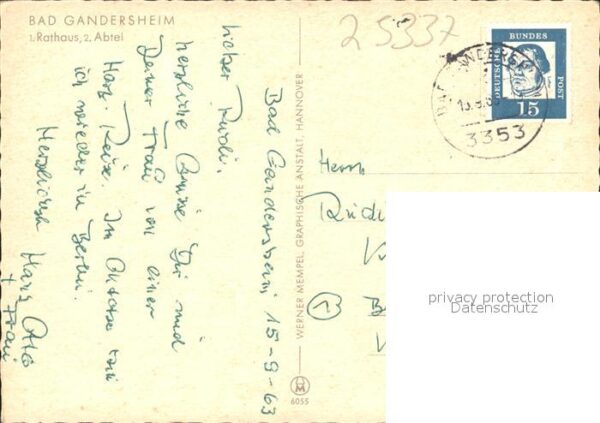 BAD GANDERSHEIM
1. Rathaus, 2. Abtei
25337
DEUTSCHE BUNDES POST
15
3353
WERNER MEMPEL, GRAPHISCHE ANSTALT, HANNOVER
6055
Bad Gandersheim 15-9-63
Lieber Rudi,
herzliche Grüße Dir und
Deiner Frau von einer
Harz-Reise. Im Oktober bin
ich wieder in Berlin.
Herzlichst Hans Otto
+ Frau
Herrn
privacy protection
Datenschutz